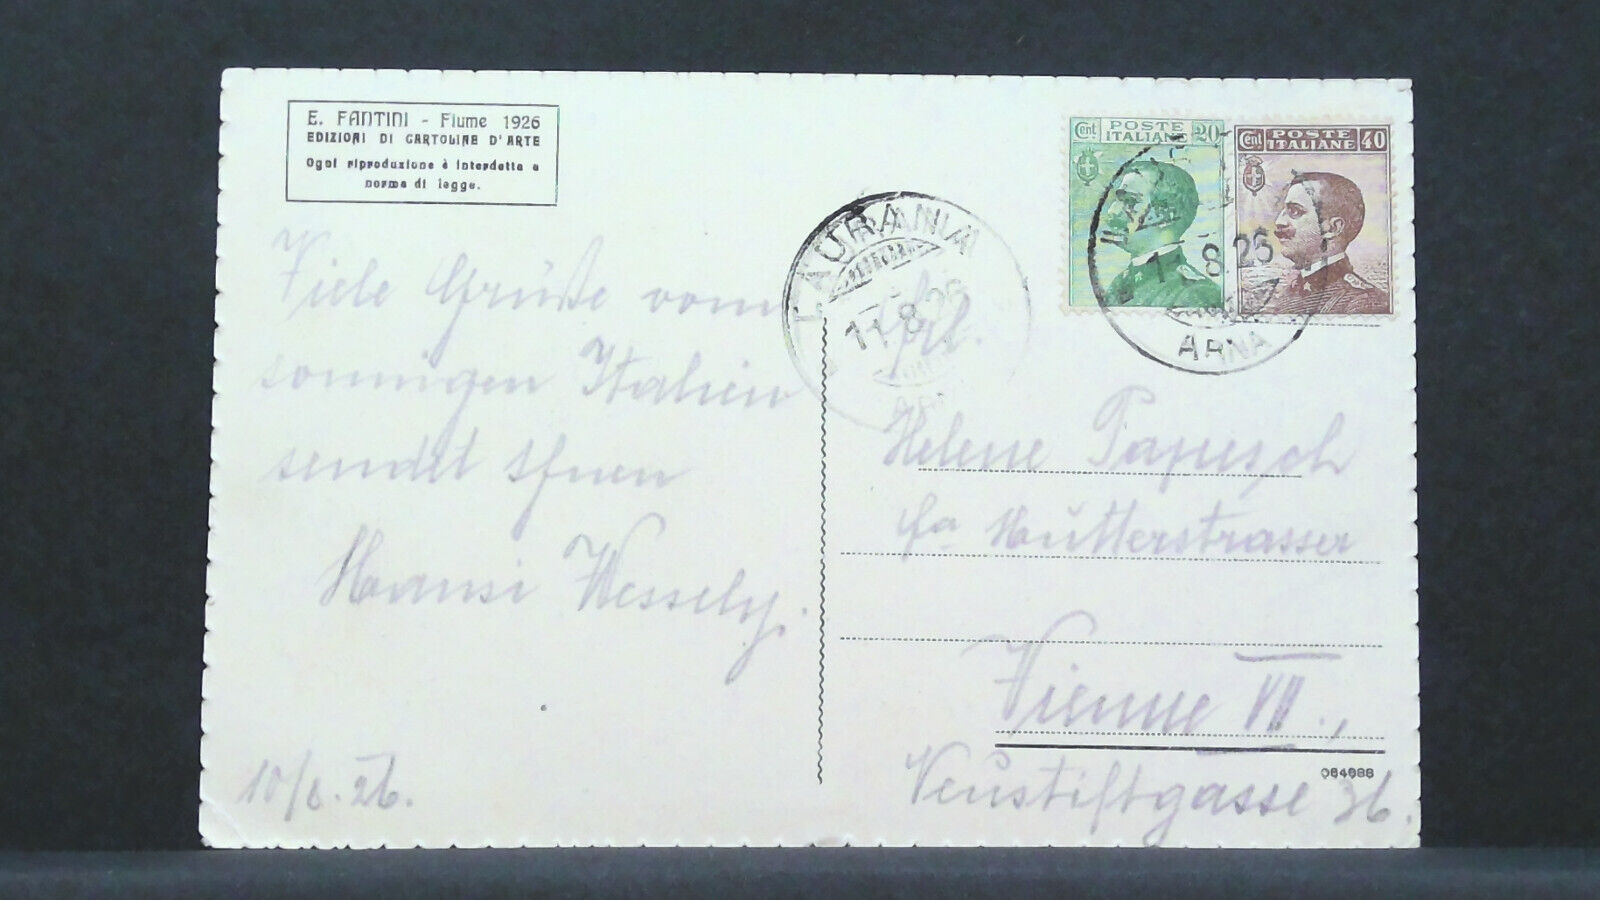 E. FANTINI - Fiume 1926
EDIZIONI DI CARTOLINE D'ARTE
Ogni riproduzione è interdetta a
norma di legge.
Viele Grüße vom
sonnigen Italien
sendet Ihnen
Hansi Wessely.
10/8. 26.
LAURANA
11.8.26
Cent. POSTE ITALIANE 20
Cent POSTE ITALIANE 40
8.26
ARNA
Frl.
Helene Papesch
fa Hutterstrasser
Vienne VII.,
Neustiftgasse 36.
064986